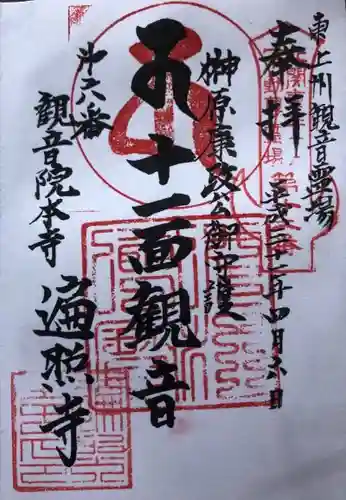 東上州観音霊場
奉拝
平成三十一年四月六日
榊原康政公御守護
十一面観音
第六番
観音院本寺
遍照寺